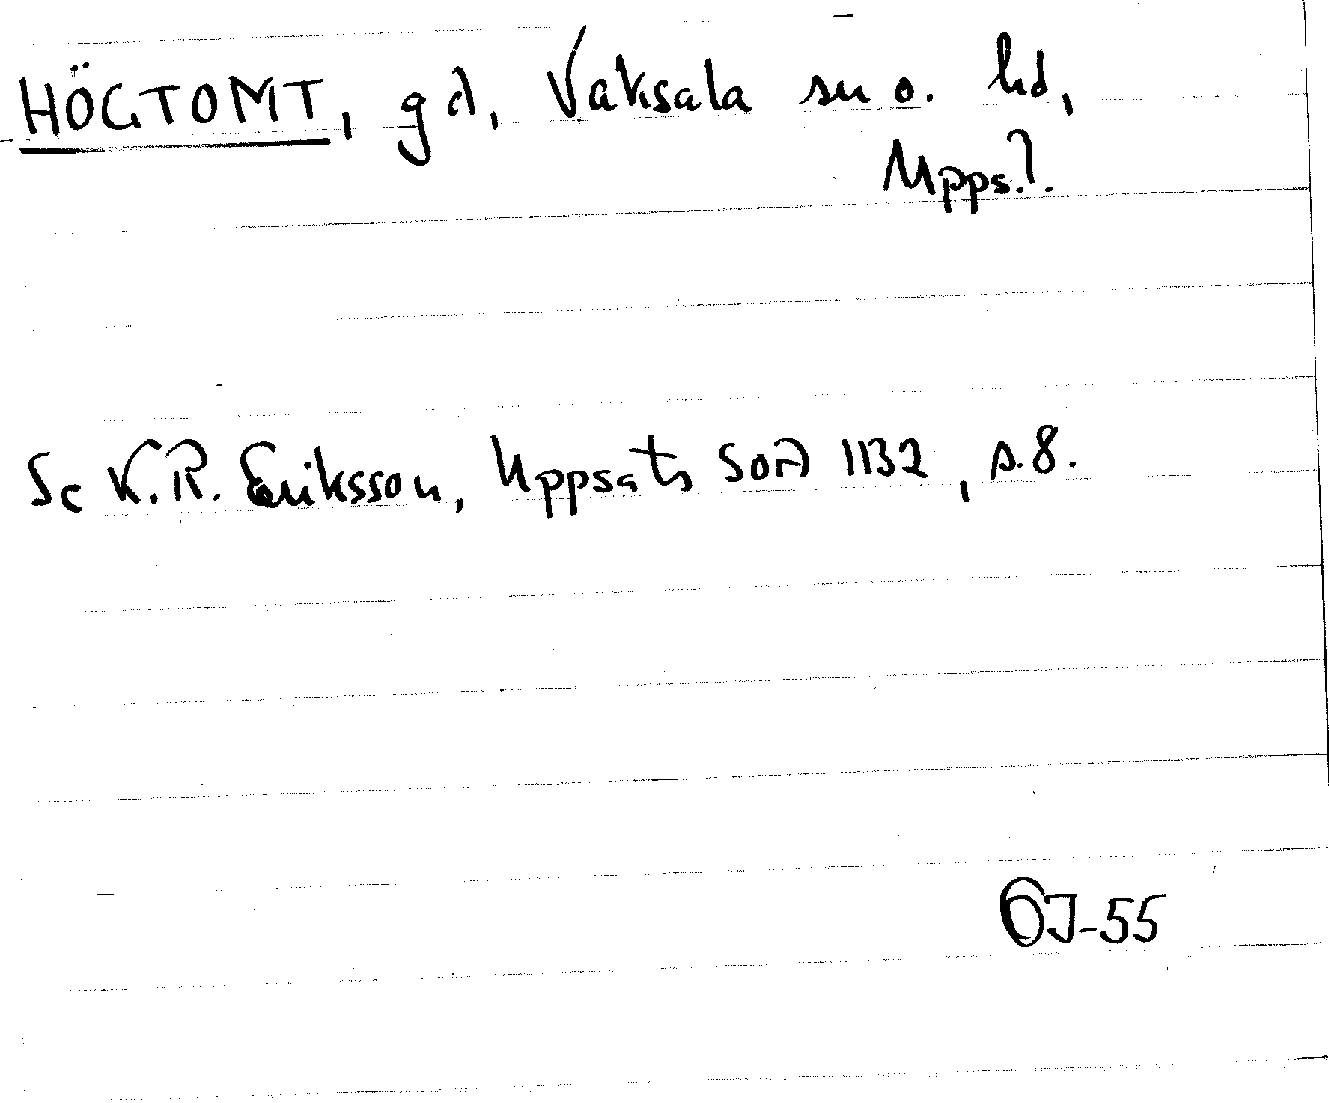 HÖGTOMT, gd, Vaksala sn o. hd,
Upps. l.
Se K.R. Eriksson, Uppsats SOA 1132, s.8.
OJ-55